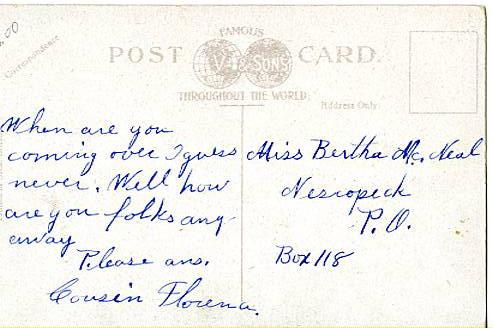 .00
Correspondence
FAMOUS
POST CARD.
V-I & SONS
THROUGHOUT THE WORLD
Address Only.
When are you
coming over I guess
never. Well how
are you folks any
away
Please ans.
Cousin Florena.
Miss Bertha Mc. Neal
Nescopeck
P.O.
Box 118